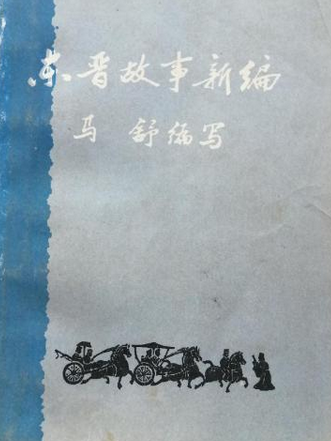 东晋故事新编
马舒编写